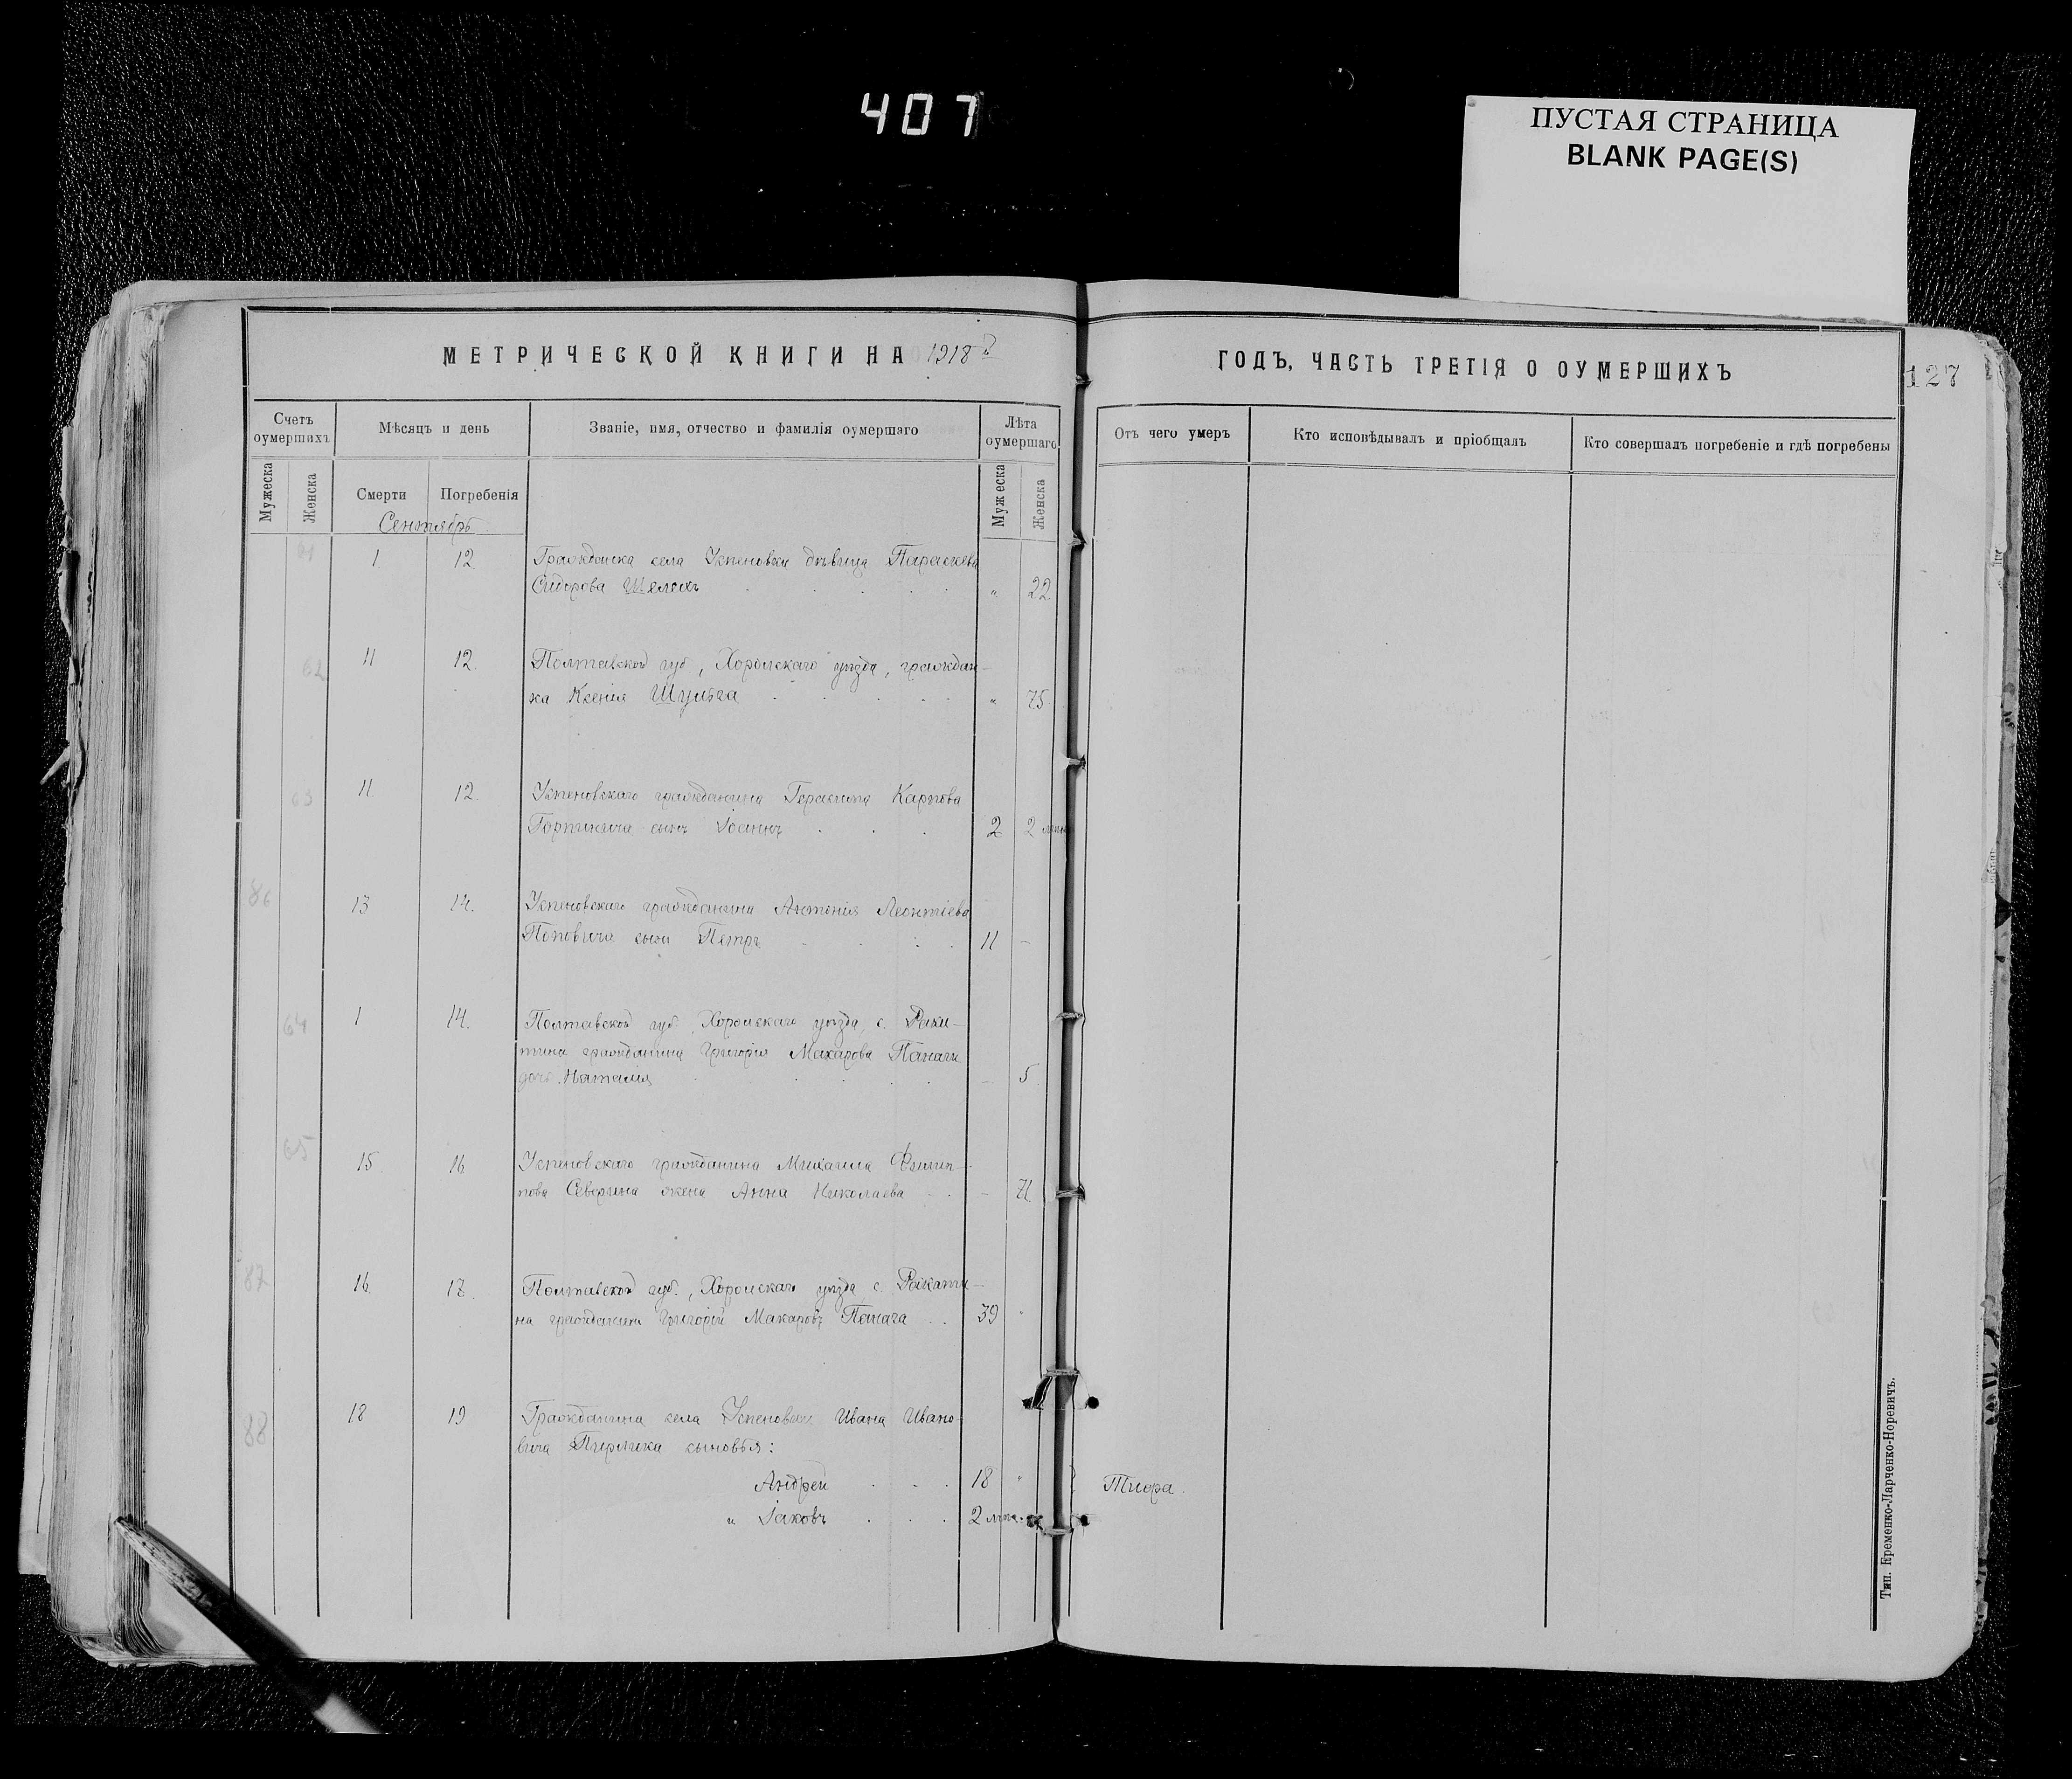 407
ПУСТАЯ СТРАНИЦА
BLANK PAGE(S)
МЕТРИЧЕСКОЙ КНИГИ НА 1918 й
ГОДЪ, ЧАСТЬ ТРЕТІЯ О ОУМЕРШИХЪ
127
Счетъ оумершихъ
Мѣсяцъ и день
Званіе, имя, отчество и фамилія оумершаго
Лѣта оумершаго
Отъ чего умеръ
Кто исповѣдывалъ и пріобщалъ
Кто совершалъ погребеніе и гдѣ погребены
Мужеска
Женска
Смерти
Погребенія
Мужеска
Женска
Сентябрь
61 1 12 Гражданка села Успеновки дѣвица Параскева
Сидорова " 22
62 11 12 Полтавской губ., Хорольскаго уѣзда, граждан-
ка Ксенія Шульга " 75
63 11 12 Успеновскаго гражданина Герасима Карпова
сынъ Іоаннъ 2 2
86 13 14 Успеновскаго гражданина Антонія Леонтіева
Поповича сынъ Петръ 11 -
64 1 14 Полтавской губ., Хорольскаго уѣзда, с. Раки-
тина гражданина Григорія Макарова Панаги
дочь Наталія - 5
65 15 16 Успеновскаго гражданина Михаила Филип-
пова Северина жена Анна Николаева - 71
87 16 17 Полтавской губ., Хорольскаго уѣзда с. Ракити-
на гражданинъ Григорій Макаровъ Панага 39 "
88 18 19 Гражданина села Успеновки Ивана Ивано-
вича сыновья:
Андрей 18 "
и Іаковъ 2 лѣта
Тифа.
Тип. Еременко-Ларченко-Норевичъ.